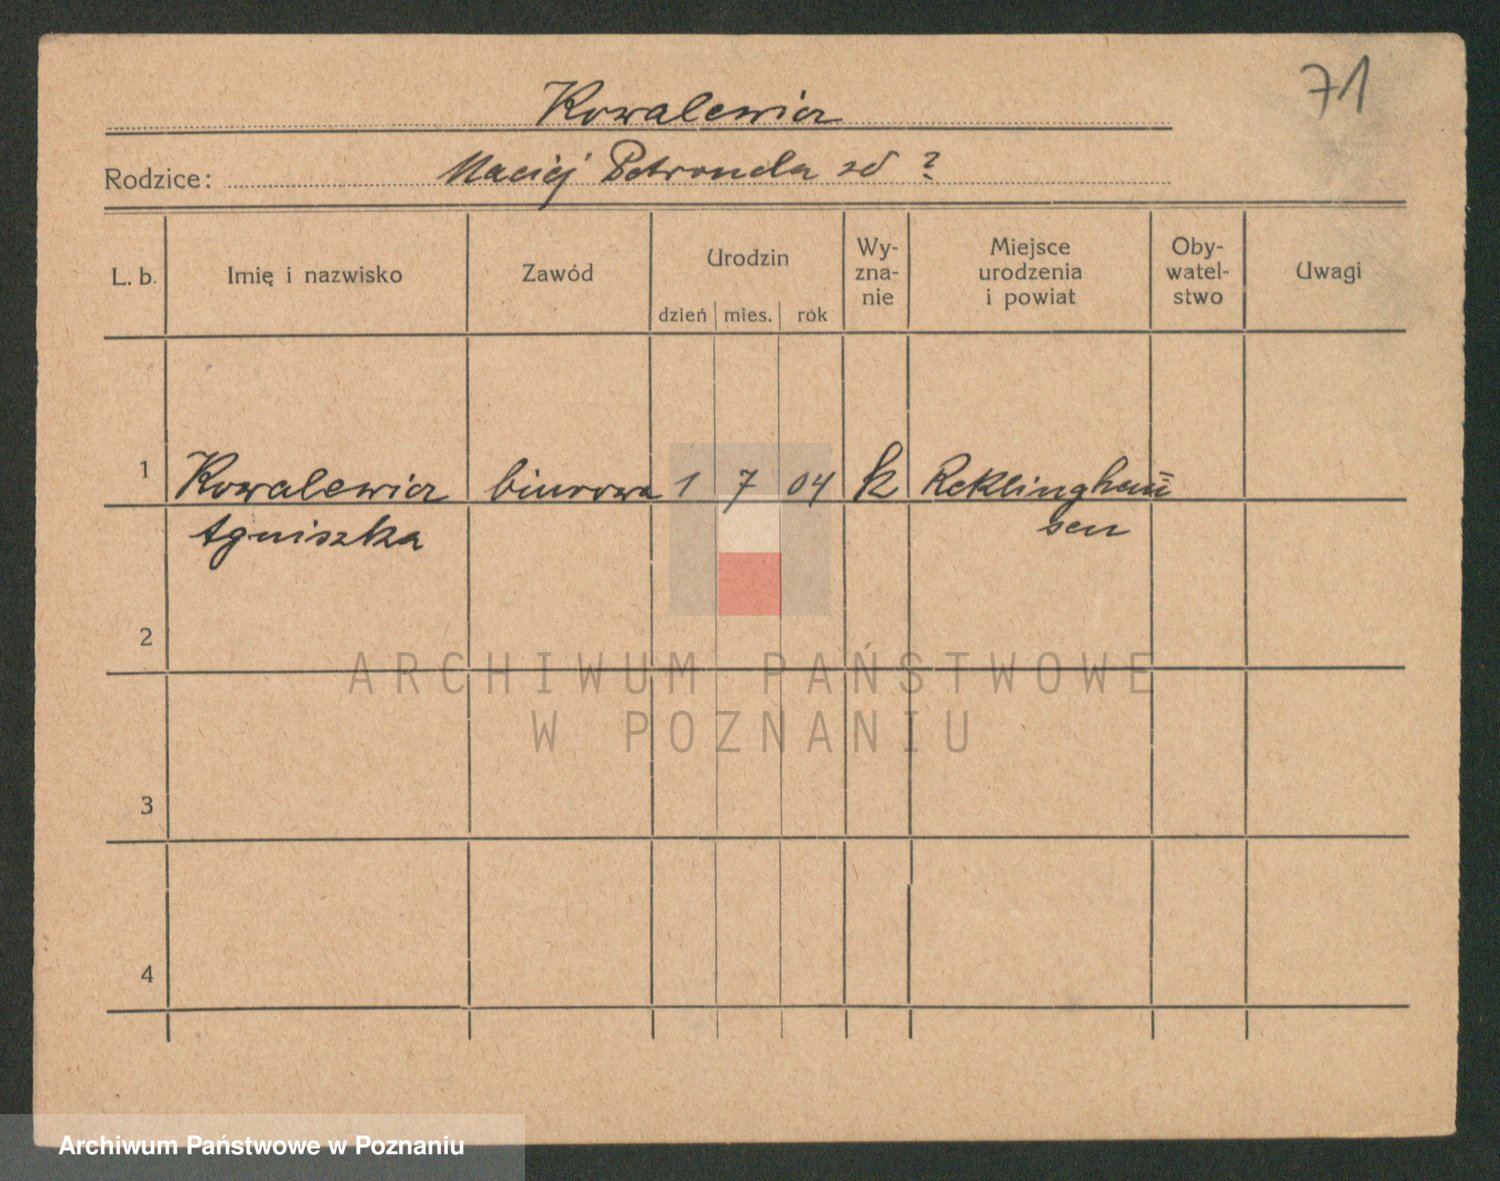 71
Kowalewicz
Rodzice: Maciej Petronela zd ?
L. b. Imię i nazwisko Zawód Urodzin dzień mies. rok Wy-zna-nie Miejsce urodzenia i powiat Oby-watel-stwo Uwagi
1 Kowalewicz biurowa 1 7 04 k Reklinghau=
Agniszka sen
2
ARCHIWUM PAŃSTWOWE
W POZNANIU
3
4
Archiwum Państwowe w Poznaniu